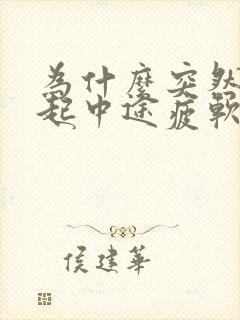 為什麼突然
起中途疲軟
侯建華